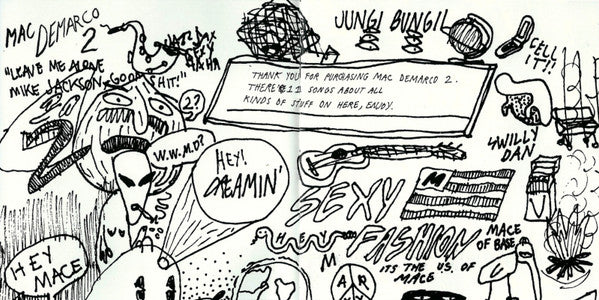 MAC
DEMARCO
2
"LEAVE ME ALONE
MIKE JACKSON GOOD
SHIT!"
JAZZ SAX
SEXY
HA HA
2?
W.W.M.D?
HEY!
DREAMIN'
HEY
MACE
JUNGI BUNGIL
CELL
IT!!
THANK YOU FOR PURCHASING MAC DEMARCO 2.
THERE'S 11 SONGS ABOUT ALL
KINDS OF STUFF ON HERE, ENJOY.
4 WILLY
DAN
SEXY
M
HEY
FASHION
M
ITS THE U.S. OF
MACE
MACE
OF BASE